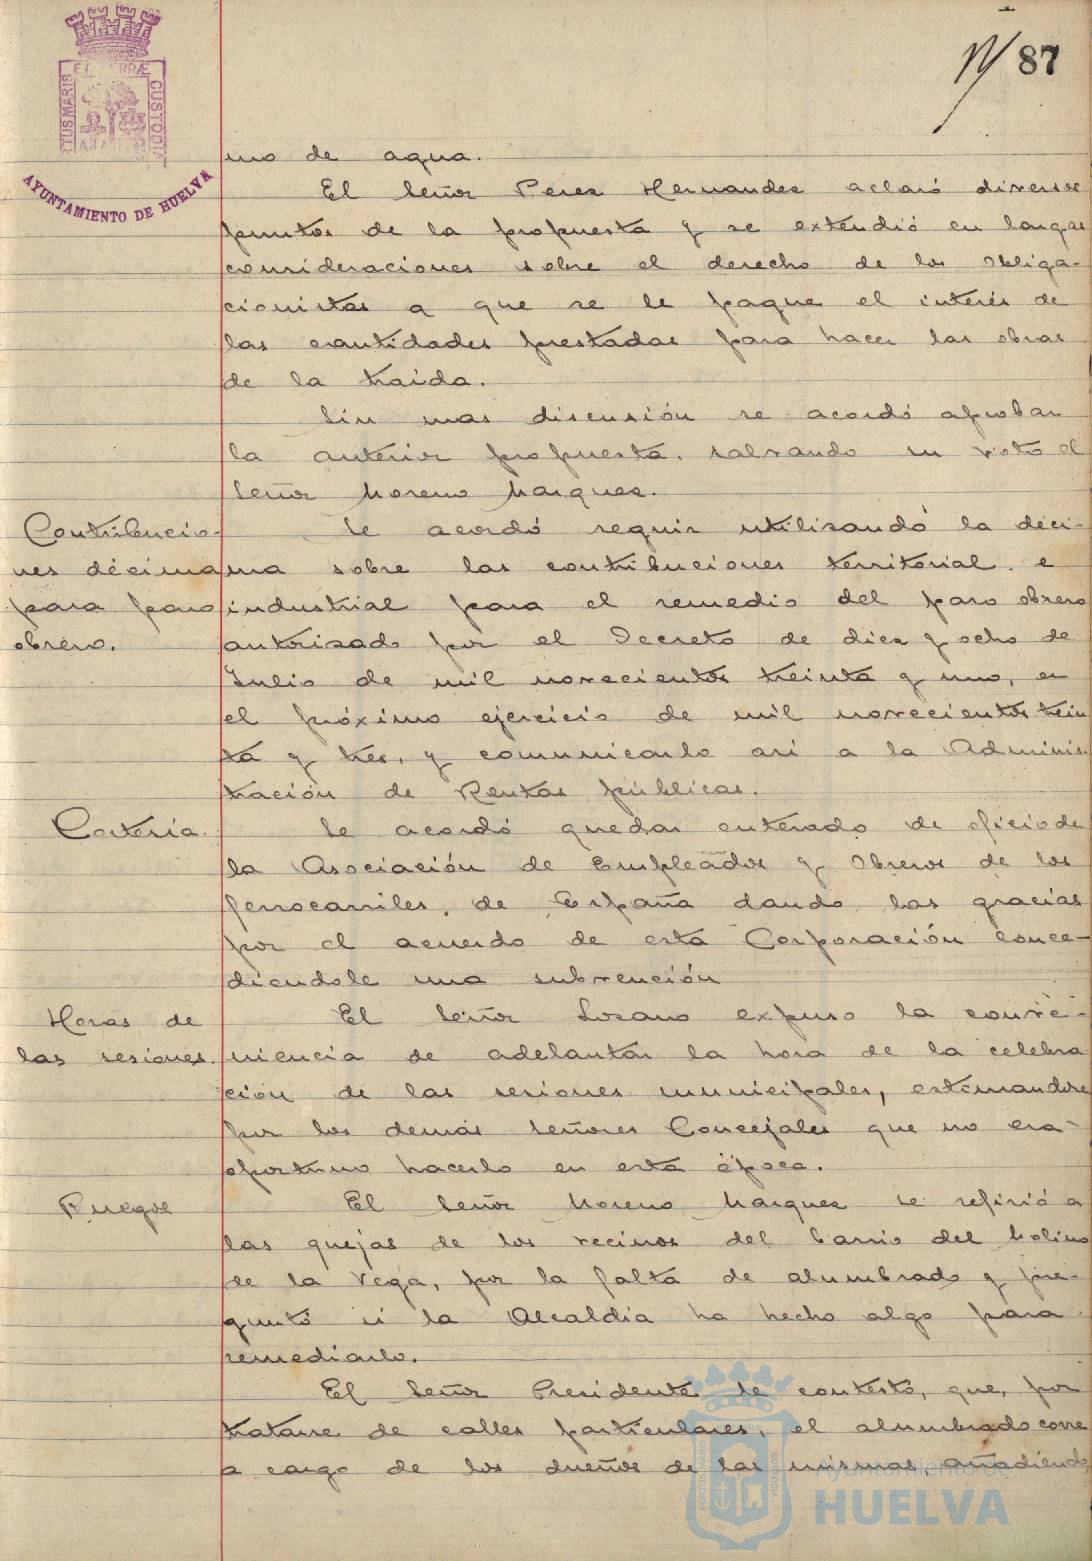 87
PORTUS MARIS ET TERRÆ CUSTODIA
AYUNTAMIENTO DE HUELVA
mo de agua.
El Señor Perez Hernandez aclaró diversos
puntos de la propuesta y se extendió en largas
consideraciones sobre el derecho de los Obliga-
cionistas a que se le pague el interés de
las cantidades prestadas para hacer las obras
de la traida.
Sin mas discusión se acordó aprobar
la anterior propuesta, salvando su voto el
Señor Moreno Marquez.
Contribucio-
nes décima
para paro
obrero.
Se acordó seguir utilizando la déci-
ma sobre las contribuciones territorial e
industrial para el remedio del paro obrero
autorizado por el Decreto de diez y ocho de
Julio de mil novecientos treinta y uno, en
el próximo ejercicio de mil novecientos trein
ta y tres, y comunicarlo asi a la Adminis-
tración de Rentas públicas.
Cartería.
Se acordó quedar enterado de oficio de
la Asociación de Empleados y Obreros de los
ferrocarriles, de España dando las gracias
por el acuerdo de esta Corporación conce-
diendole una subvención
Horas de
las sesiones.
El Señor Lozano expuso la conve-
niencia de adelantar la hora de la celebra
ción de las sesiones municipales, estimandose
por los demás Señores Concejales que no era
oportuno hacerlo en esta época.
Ruegos
El Señor Moreno Marquez se refirió a
las quejas de los vecinos del barrio del Molino
de la Vega, por la falta de alumbrado y pre-
guntó si la Alcaldía ha hecho algo para
remediarlo.
El Señor Presidente le contestó, que, por
tratarse de calles particulares, el alumbrado corre
a cargo de los dueños de las mismas, añadiendo
Ayuntamiento de
HUELVA